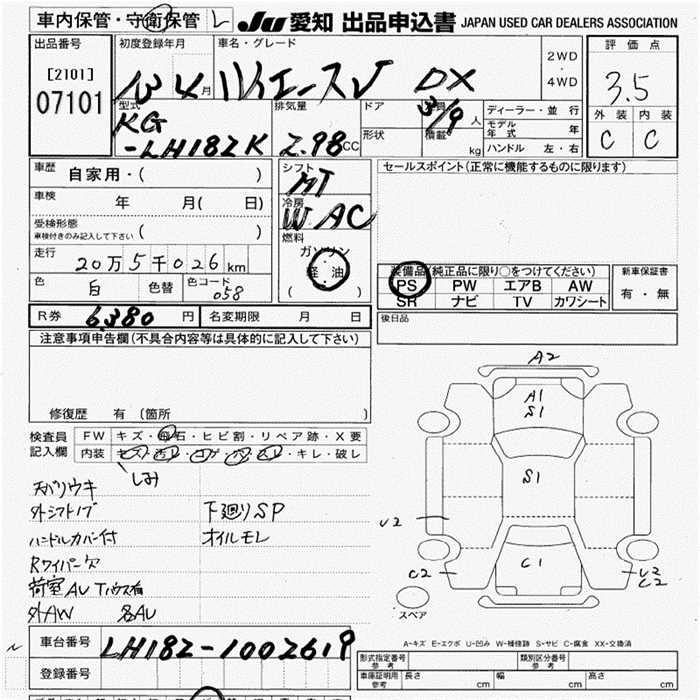 車内保管・守衛保管 L JU 愛知 出品申込書 JAPAN USED CAR DEALERS ASSOCIATION
出品番号 初度登録年月 車名・グレード 評価点
[2101] 2WD
07101 13 4月 ハイエースV DX 4WD 3.5
型式 排気量 ドア 定員 3/9人 ディーラー・並行 外装 内装
KG モデル年式 年
-LH182K 2.98CC 形状 積載 kg ハンドル 左・右 C C
車歴 自家用・( ) シフト MT セールスポイント(正常に機能するものに限ります)
車検 年 月( 日) 冷房 W AC
受検形態
車検付きのみ記入して下さい ( ) 燃料
走行 20万5千026km ガソリン
軽油
( )
装備品(純正品に限り○をつけてください) 新車保証書
色 白 色替 色コード 058 PS PW エアB AW 有・無
SR ナビ TV カワシート
R券 6,380円 名変期限 月 日 後日品
注意事項申告欄(不具合内容等は具体的に記入して下さい)
修復歴 有(箇所 )
検査員 FW キズ・飛石・ヒビ割・リペア跡・X要
記入欄 内装 キズ・汚レ・コゲ・穴・スレ・キレ・破レ
しみ
天バリウキ
外シフトノブ 下廻りSP
ハンドルカバー付 オイルモレ
Rワイパー欠
荷室AU Tハウス有
外AW 各AU
A2
A1
S1
S1
U2
C1
C2 U2
C2
スペア
A-キズ E-エクボ U-凹み W-補修跡 S-サビ C-腐食 XX-交換済
車台番号 LH182-1002619
登録番号
形式指定番号 参考 類別区分番号 参考
車庫証明用 参考 長さ cm 幅 cm 高さ cm